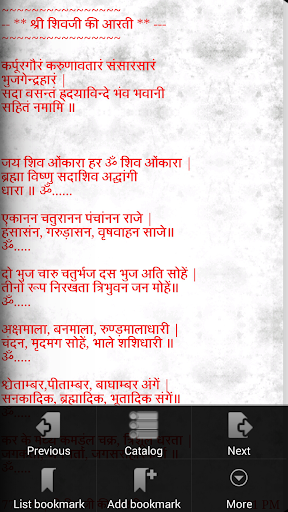 ~~~~~~~~~~~~~~~~
-- ** श्री शिवजी की आरती ** ---
~~~~~~~~~~~~~~~~
कर्पूरगौरं करुणावतारं संसारसारं
भुजगेन्द्रहारं |
सदा वसन्तं ह्रदयाविन्दे भंव भवानी
सहितं नमामि ॥
जय शिव ओंकारा हर ॐ शिव ओंकारा |
ब्रह्मा विष्णु सदाशिव अद्धांगी
धारा ॥ ॐ......
एकानन चतुरानन पंचांनन राजे |
हंसासंन, गरुड़ासन, वृषवाहन साजे॥
ॐ.....
दो भुज चारु चतुर्भज दस भुज अति सोहें |
तीनों रुप निरखता त्रिभुवन जन मोहें॥
ॐ.....
अक्षमाला, बनमाला, रुण्ड़मालाधारी |
चंदन, मृदमग सोहें, भाले शशिधारी ॥
ॐ....
श्वेताम्बर,पीताम्बर, बाघाम्बर अंगें |
सनकादिक, ब्रह्मादिक, भूतादिक संगें॥
Previous Catalog Next
List bookmark Add bookmark More